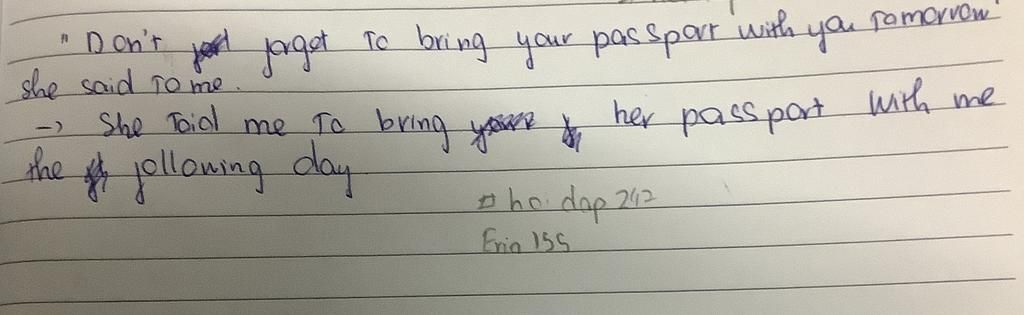 "Don't forget To bring your passport with you Tomorrow"
she said To me.
→ She Told me To bring her passport with me
the following day
hoidap 242
Erin 155